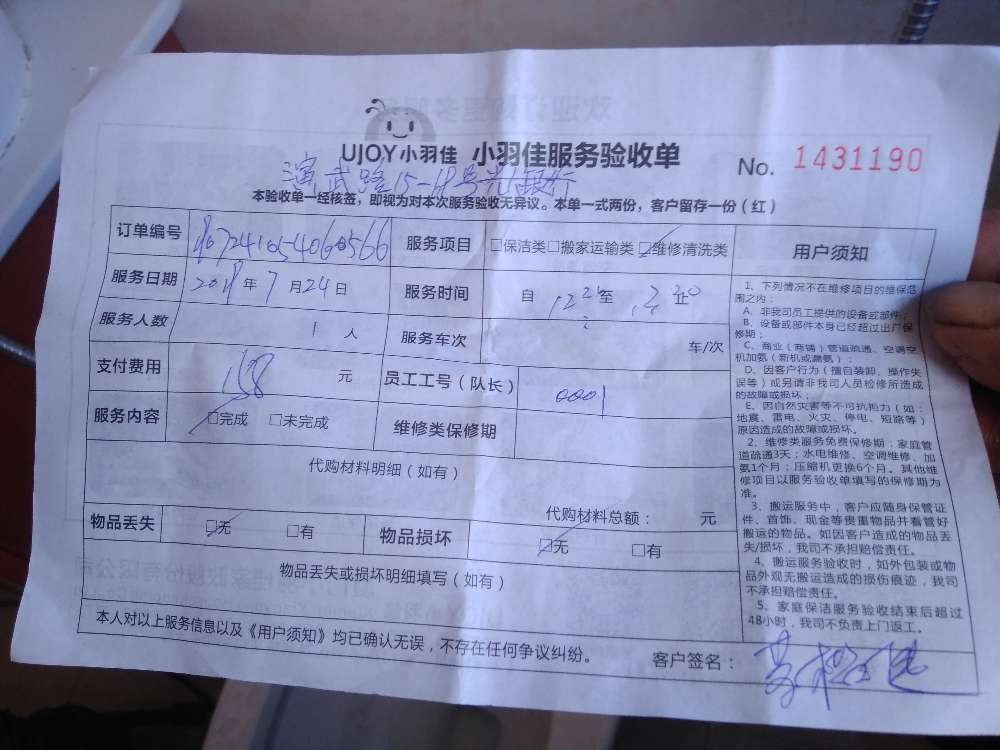 UJOY小羽佳 小羽佳服务验收单 No. 1431190
演武路15-18号光大银行
本验收单一经核签，即视为对本次服务验收无异议。本单一式两份，客户留存一份（红）
订单编号 服务项目 □保洁类□搬家运输类☑维修清洗类
服务日期 2018年7月24日 服务时间 自 至 止
服务人数 1 人 服务车次 车/次
支付费用 158 元 员工工号（队长） 0001
服务内容 ☑完成 □未完成 维修类保修期
代购材料明细（如有）
代购材料总额： 元
物品丢失 ☑无 □有 物品损坏 ☑无 □有
物品丢失或损坏明细填写（如有）
本人对以上服务信息以及《用户须知》均已确认无误，不存在任何争议纠纷。 客户签名：
用户须知
1、下列情况不在维修项目的维保范
围之内：
A、非我司员工提供的设备或部件；
B、设备或部件本身已经超过出厂保
修期；
C、商业（商铺）管道疏通、空调空
机加氨（新机或漏氨）；
D、因客户行为（擅自装卸、操作失
误等）或另请非我司人员检修所造成
的故障或损坏；
E、因自然灾害等不可抗拒力（如：
地震、雷电、火灾、停电、短路等）
原因造成的故障或损坏。
2、维修类服务免费保修期：家庭管
道疏通3天；水电维修、空调维修、加
氨1个月；压缩机更换6个月。其他维
修项目以服务验收单填写的保修期为
准。
3、搬运服务中，客户应随身保管证
件、首饰、现金等贵重物品并看管好
搬运的物品。如因客户造成的物品丢
失/损坏，我司不承担赔偿责任。
4、搬运服务验收时，如外包装或物
品外观无搬运造成的损伤痕迹，我司
不承担赔偿责任。
5、家庭保洁服务验收结束后超过
48小时，我司不负责上门返工。